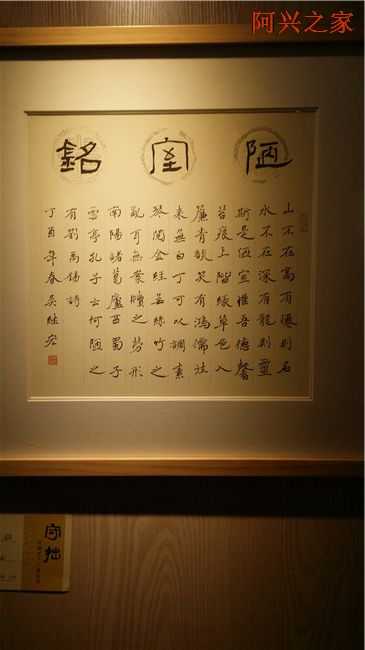 阿兴之家
陋室銘
山不在高有僊則名
水不在深有龍則靈
斯是陋室惟吾德馨
苔痕上階緑草色入
簾青談笑有鴻儒往
來無白丁可以調素
琴閱金經無絲竹之
亂耳無案牘之勞形
南陽諸葛廬西蜀子
雲亭孔子云何陋之
有劉禹錫詩
丁酉年春吴
守拙